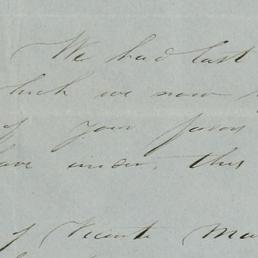 We had last
which we now
of your favor
have under this
of Vicente Ma